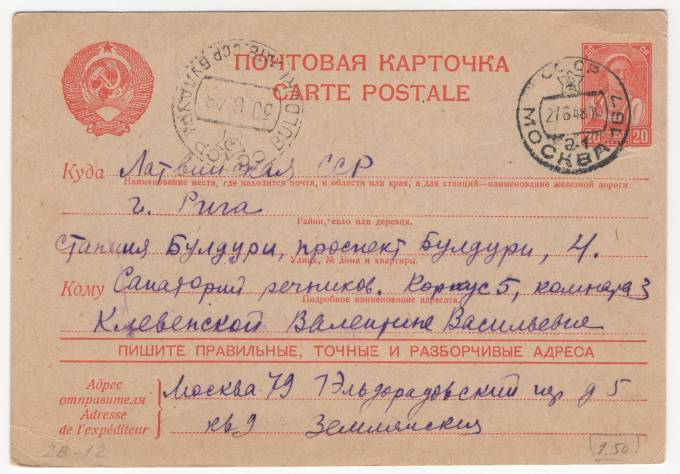 ПОЧТОВАЯ КАРТОЧКА
CARTE POSTALE
СССР
27 6 48
МОСКВА 197
20 20
30 6 48
Куда Латвийская ССР
Наименование места, где находится почта, и области или края, а для станций—наименование железной дороги
г. Рига
Район, село или деревня.
станция Булдури, проспект Булдури, 4.
Улица, № дома и квартиры.
Кому Санаторий речников. Корпус 5, комната 3
Подробное наименование адресата.
Валентине Васильевне
ПИШИТЕ ПРАВИЛЬНЫЕ, ТОЧНЫЕ И РАЗБОРЧИВЫЕ АДРЕСА
Адрес отправителя
Adresse de l'expéditeur
Москва 79 1 Эльдорадовский пер д 5
кв 9 Землянския
28-12
1.50